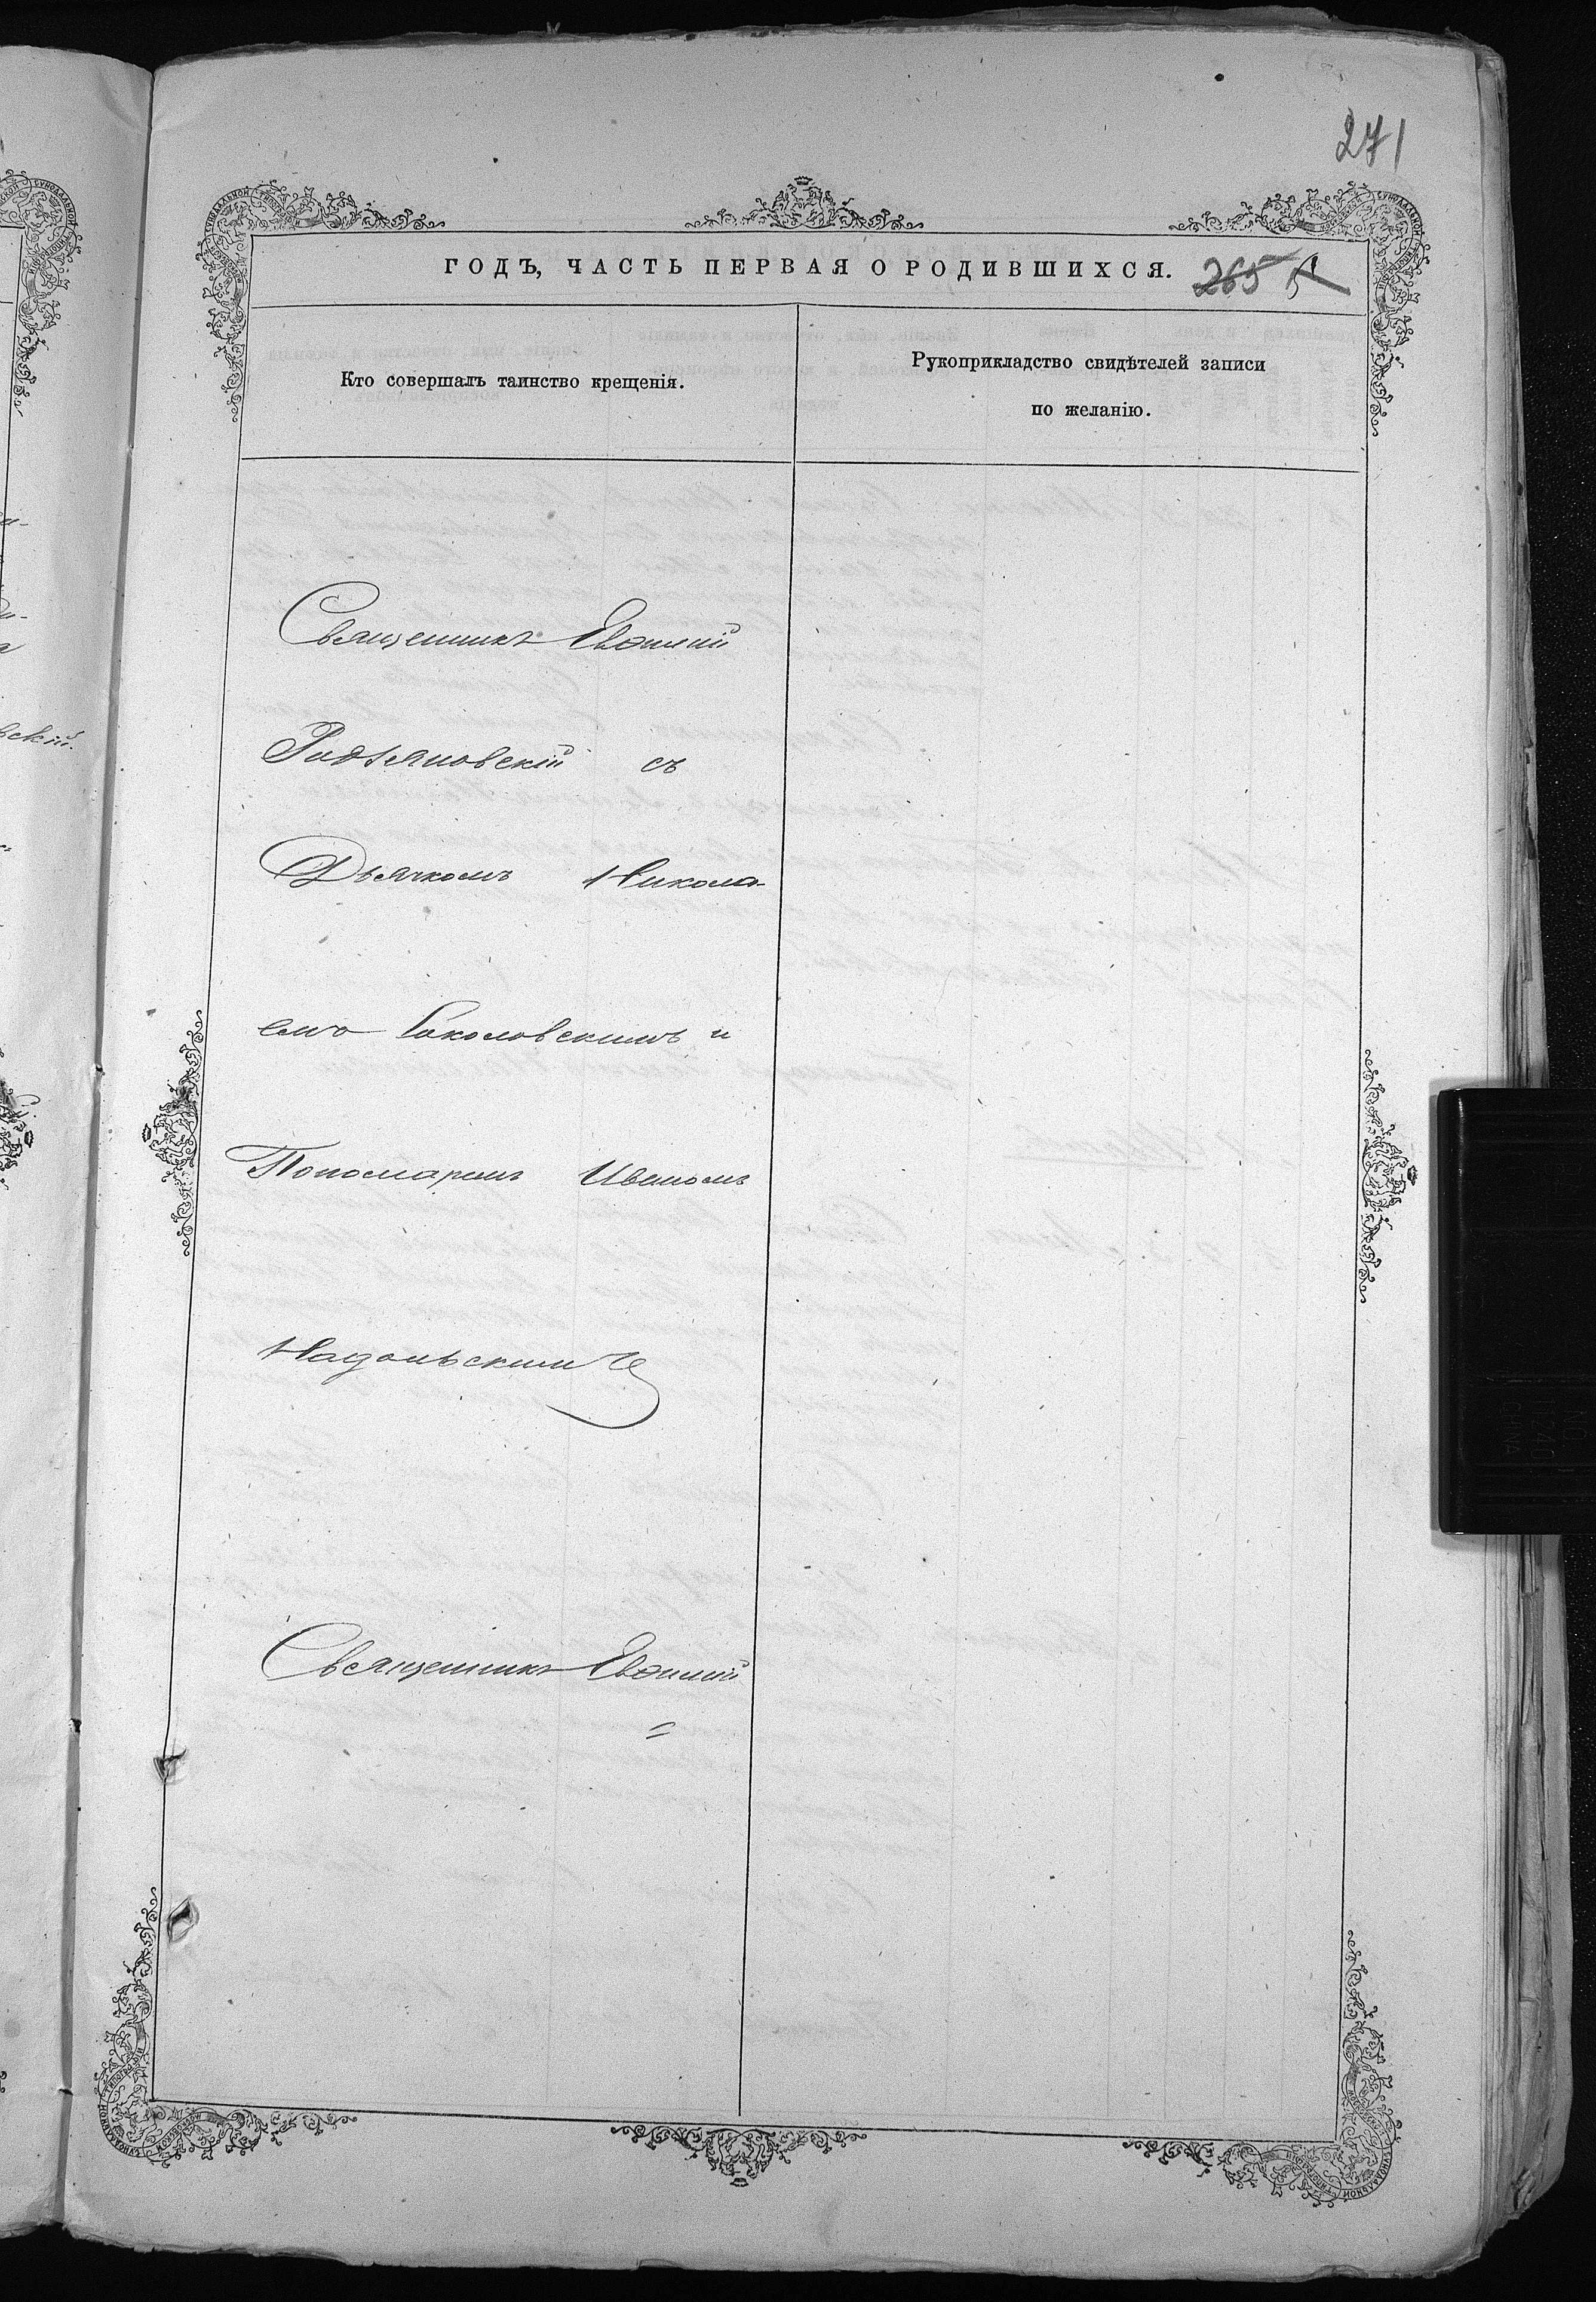 271
ГОДЪ, ЧАСТЬ ПЕРВАЯ О РОДИВШИХСЯ. 265
Кто совершалъ таинство крещенія.
Рукоприкладство свидѣтелей записи
по желанію.
Священникъ Евфимій
съ
Дьячкомъ Никола-
емъ Соколовскимъ и
Пономаремъ Иваномъ
Надольскимъ
Священникъ Евфимій